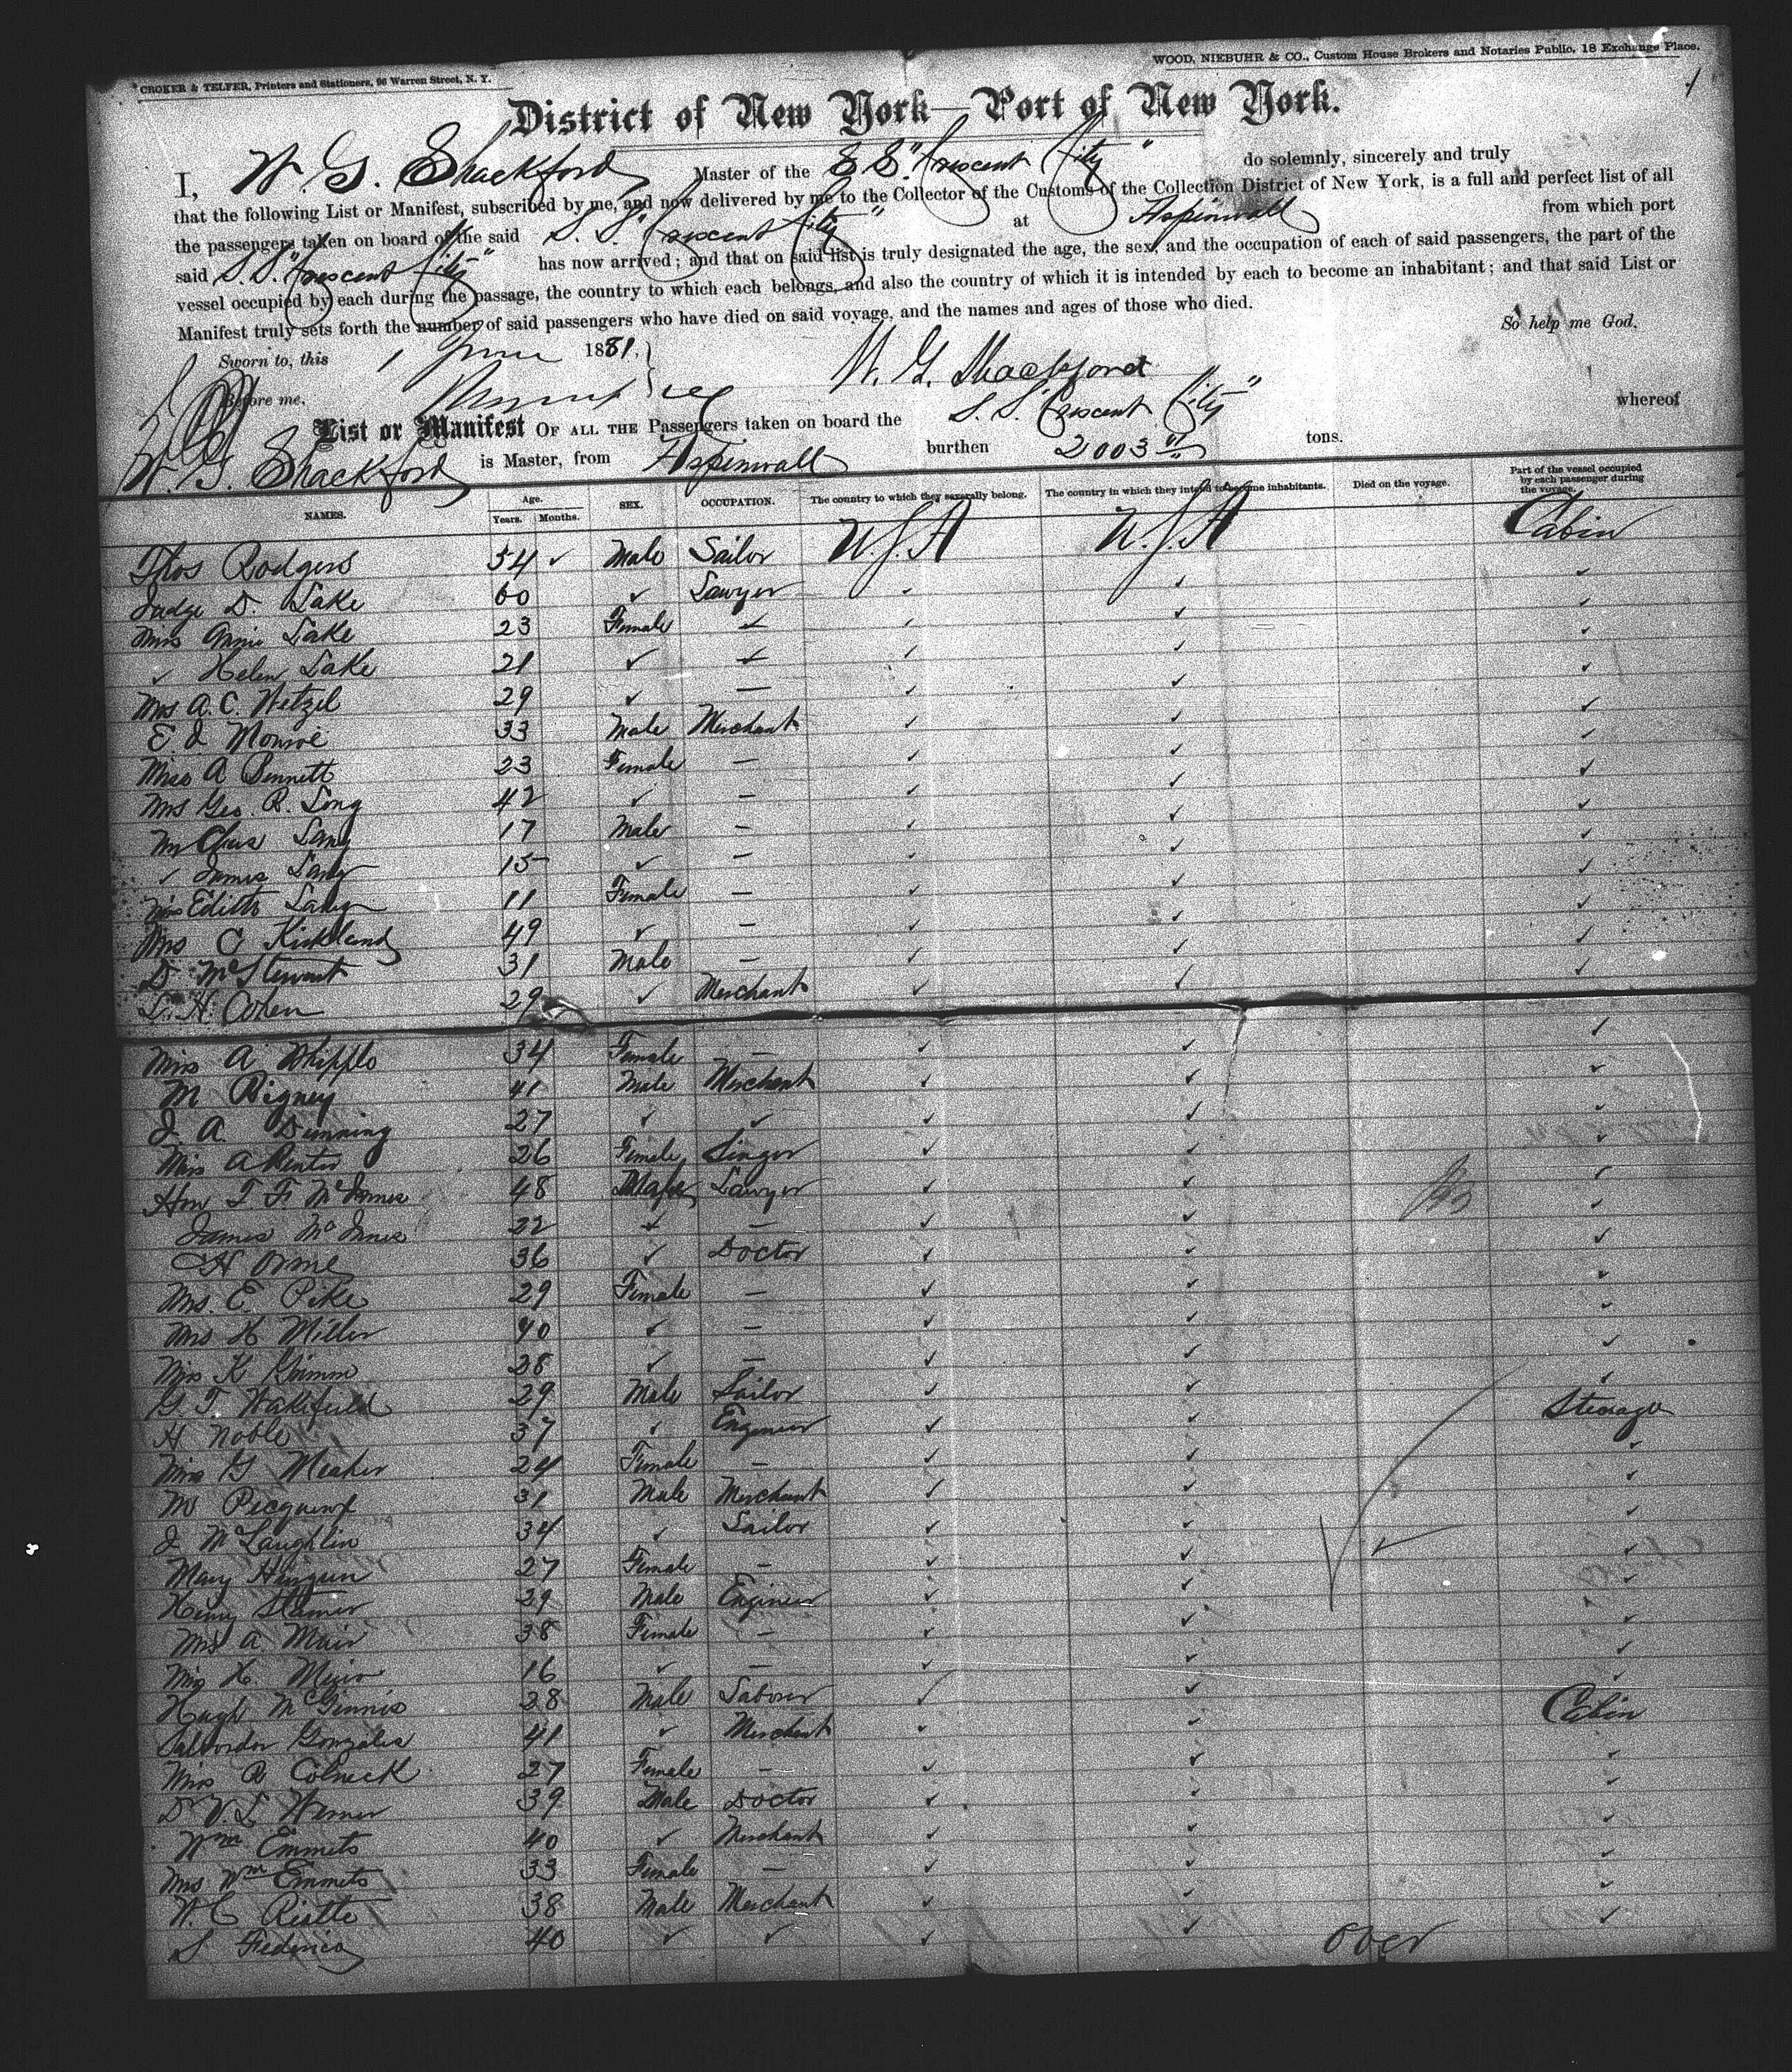 CROKER & TELFER, Printers and Stationers, 96 Warren Street, N. Y.
WOOD, NIEBUHR & CO., Custom House Brokers and Notaries Public, 18 Exchange Place.
1
District of New York—Port of New York.
I, W. G. Shackford Master of the S S "Crescent City" do solemnly, sincerely and truly
that the following List or Manifest, subscribed by me, and now delivered by me to the Collector of the Customs of the Collection District of New York, is a full and perfect list of all
the passengers taken on board of the said S. S. "Crescent City" at Aspinwall from which port
said S. S. "Crescent City" has now arrived; and that on said list is truly designated the age, the sex, and the occupation of each of said passengers, the part of the
vessel occupied by each during the passage, the country to which each belongs, and also the country of which it is intended by each to become an inhabitant; and that said List or
Manifest truly sets forth the number of said passengers who have died on said voyage, and the names and ages of those who died.
So help me God.
Sworn to, this 1 June 1881.
W. G. Shackford
Before me,
List or Manifest OF ALL THE Passengers taken on board the S. S. "Crescent City" whereof
W. G. Shackford is Master, from Aspinwall burthen 2003 tons.
NAMES. Age. Years. Months. SEX. OCCUPATION. The country to which they severally belong. The country in which they intend to become inhabitants. Died on the voyage. Part of the vessel occupied by each passenger during the voyage.
Thos Rodgers 54 ✓ Male Sailor U.S.A U.S.A Cabin
Judge D. Lake 60 ✓ Lawyer ✓ ✓ ✓
Miss Annie Lake 23 Female ✓ ✓ ✓
✓ Helen Lake 21 ✓ ✓ ✓ ✓
Mrs A. C. Wetzel 29 ✓ — ✓ ✓ ✓
E. J Monroe 33 Male Merchant ✓ ✓ ✓
Miss A Bennett 23 Female — ✓ ✓ ✓
Mrs Geo. R. Long 42 ✓ — ✓ ✓ ✓
Mr Chas Long 17 Male — ✓ ✓ ✓
✓ James Long 15 ✓ — ✓ ✓ ✓
Miss Edith Long 11 Female — ✓ ✓ ✓
Mrs C Kirkland 49 ✓ — ✓ ✓ ✓
D McStewart 31 Male — ✓ ✓ ✓
L. H. Cohen 29 ✓ Merchant ✓ ✓ ✓
Miss A Whipple 34 Female — ✓ ✓ ✓
M Rigney 41 Male Merchant ✓ ✓ ✓
J. A. Dunning 27 ✓ ✓ ✓ ✓ ✓
Miss A 26 Female Singer ✓ ✓ ✓
Hon T. F. McInnes 48 Male Lawyer ✓ ✓ ✓
James McInnes 22 ✓ — ✓ ✓ ✓
H Orme 36 ✓ Doctor ✓ ✓ ✓
Mrs. E. Pike 29 Female — ✓ ✓ ✓
Mrs H Miller 40 ✓ — ✓ ✓ ✓
Miss K Grimm 28 ✓ — ✓ ✓ ✓
G. T. Wakefield 29 Male Sailor ✓ ✓ ✓
H Noble 37 ✓ Engineer ✓ ✓ Steerage
Miss G Meaher 24 Female — ✓ ✓ ✓
M 31 Male Merchant ✓ ✓ ✓
J McLaughlin 34 ✓ Sailor ✓ ✓ ✓
Mary 27 Female — ✓ ✓ ✓
Henry 29 Male Engineer ✓ ✓ ✓
Mrs A Muir 38 Female — ✓ ✓ ✓
Miss H. Muir 16 ✓ — ✓ ✓ ✓
Hugh McGinnis 28 Male Laborer ✓ ✓ ✓
Salvordor Gonzales 41 ✓ Merchant ✓ ✓ Cabin
Miss R Colneck 27 Female — ✓ ✓ ✓
Dr V. L Warner 39 Male Doctor ✓ ✓ ✓
Wm Emmets 40 ✓ Merchant ✓ ✓ ✓
Mrs Wm Emmets 33 Female — ✓ ✓ ✓
W. C Riotte 38 Male Merchant ✓ ✓ ✓
S Federico 40 ✓ ✓ ✓ ✓ ✓
Over